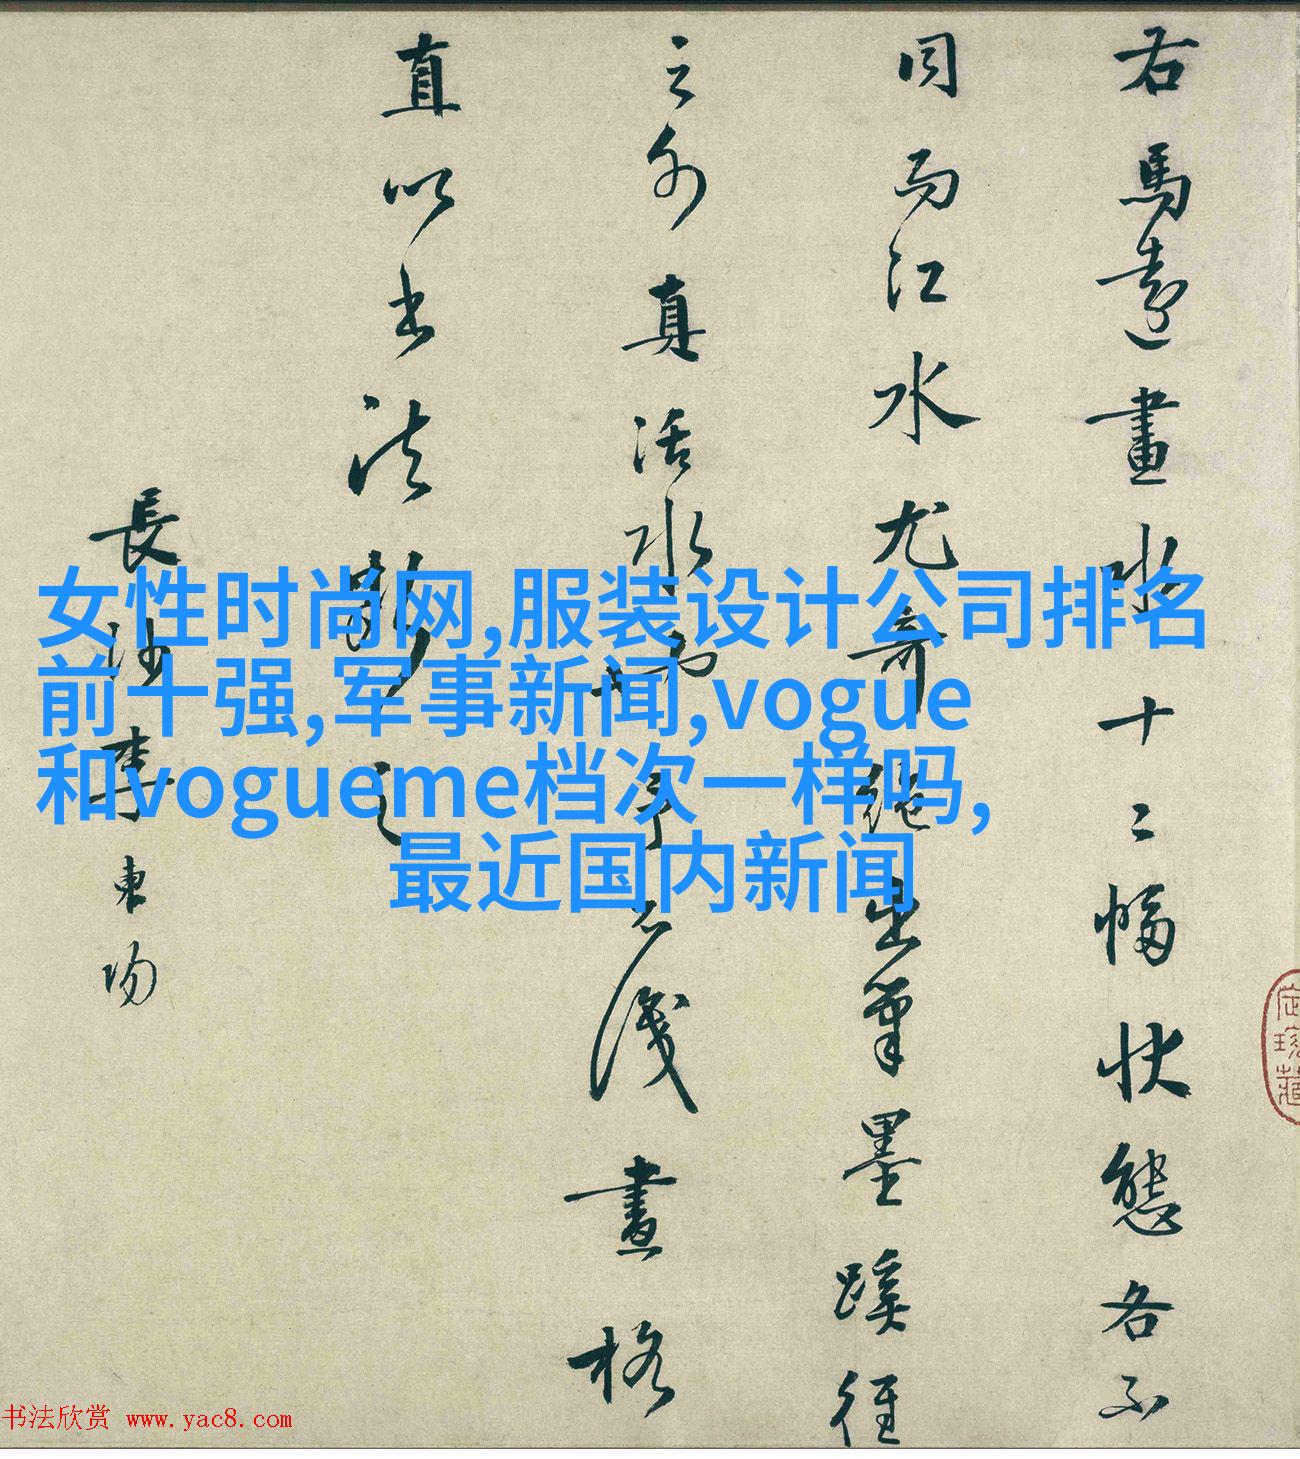 右馬遠畫水十二幅狀態各不
同而江水尤奇絕出筆墨蹊徑
之外真活水也予不識畫格
直以書法斷之
長沙李東陽
女性时尚网,服装设计公司排名
前十强,军事新闻,vogue
和vogueme档次一样吗,
最近国内新闻
书法欣赏 www.yac8.com